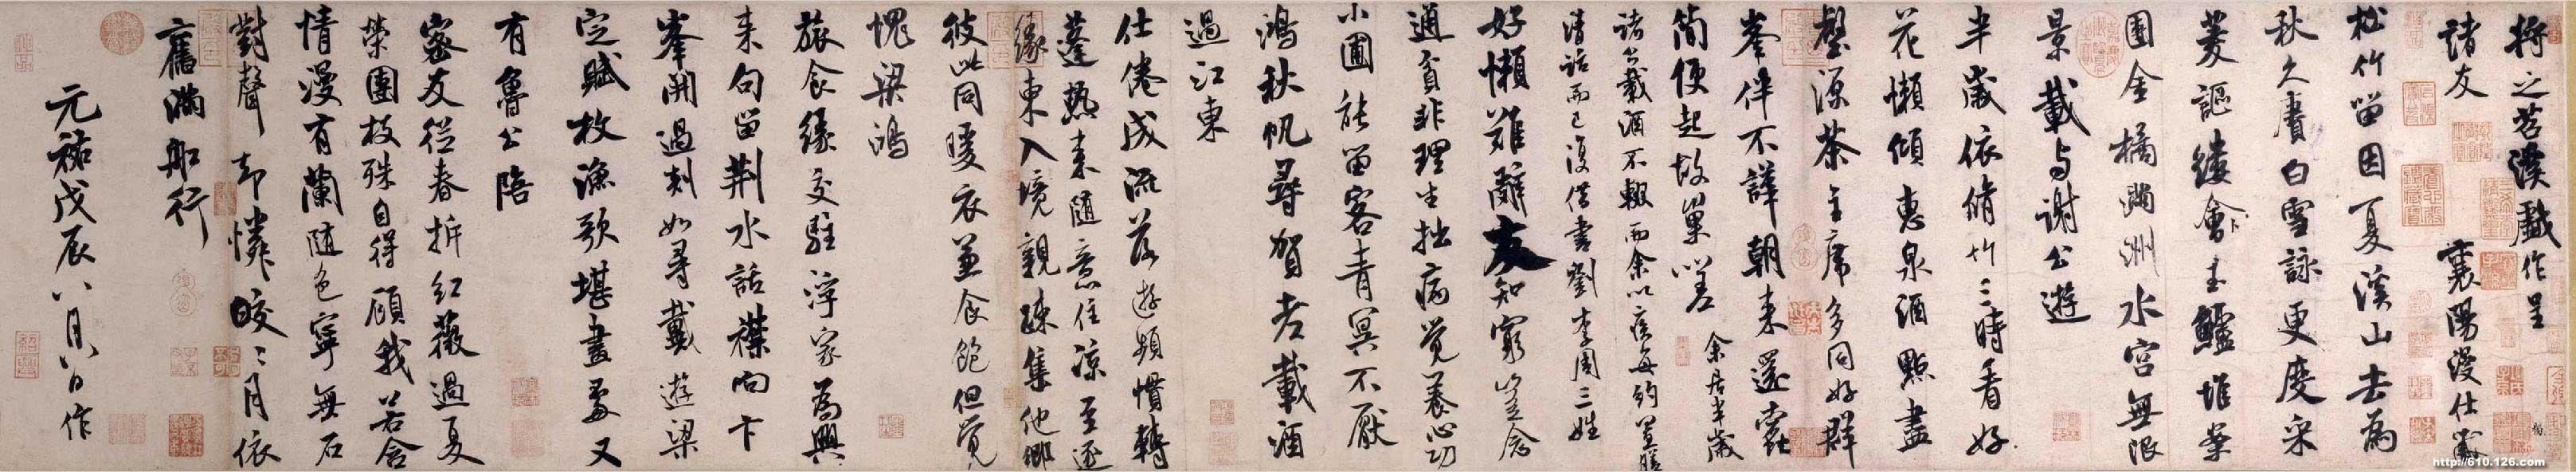 將之苕溪戲作呈
諸友 襄陽漫仕黻
松竹留因夏溪山去為
秋久賡白雪詠更度采
菱謳縷會玉鱸堆案
團金橘滿洲水宮無限
景載與謝公遊
半歲依脩竹三時看好
花懶傾惠泉酒點盡
壑源茶主席多同好群
峯伴不譁朝來還蠹
簡便起故巢嗟 余居半歲
諸公載酒不輟而余以疾每約置膳
清話而已復借書劉李周三姓
好懶難辭友知窮豈念
通貧非理生拙病覺養心功
小圃能留客青冥不厭
鴻秋帆尋賀老載酒
過江東
仕倦成流落遊頻慣轉
蓬熱來隨意住涼至逐
緣東入境親疎集他鄉
彼此同暖衣兼食飽但覺
愧梁鴻
旅食緣交駐浮家為興
來句留荆水話襟向卞
峯開過剡如尋戴遊梁
定賦枚漁歌堪畫處又
有魯公陪
密友從春拆紅薇過夏
榮團枝殊自得顧我若含
情漫有蘭隨色寧無石
對聲却憐皎〻月依
舊滿船行
元祐戊辰八月八日作
http://610.126.com